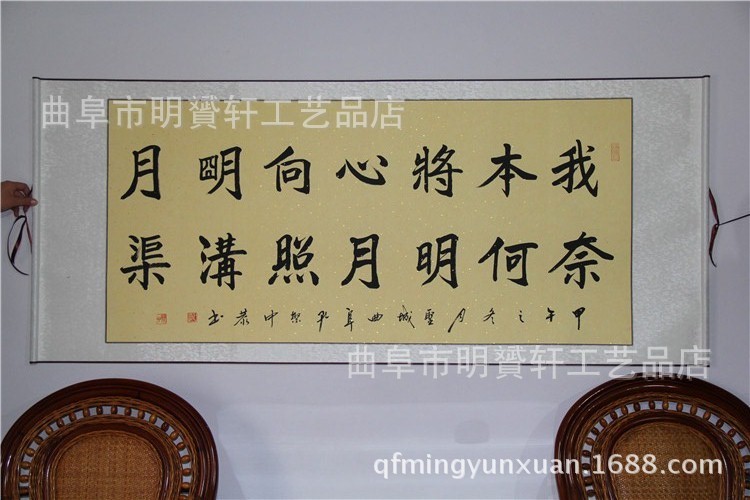 曲阜市明贇轩工艺品店
我本將心向朙月
奈何明月照溝渠
甲午之冬月聖城曲阜孔中恭书
曲阜市明贇轩工艺品店
qfmingyunxuan.1688.com